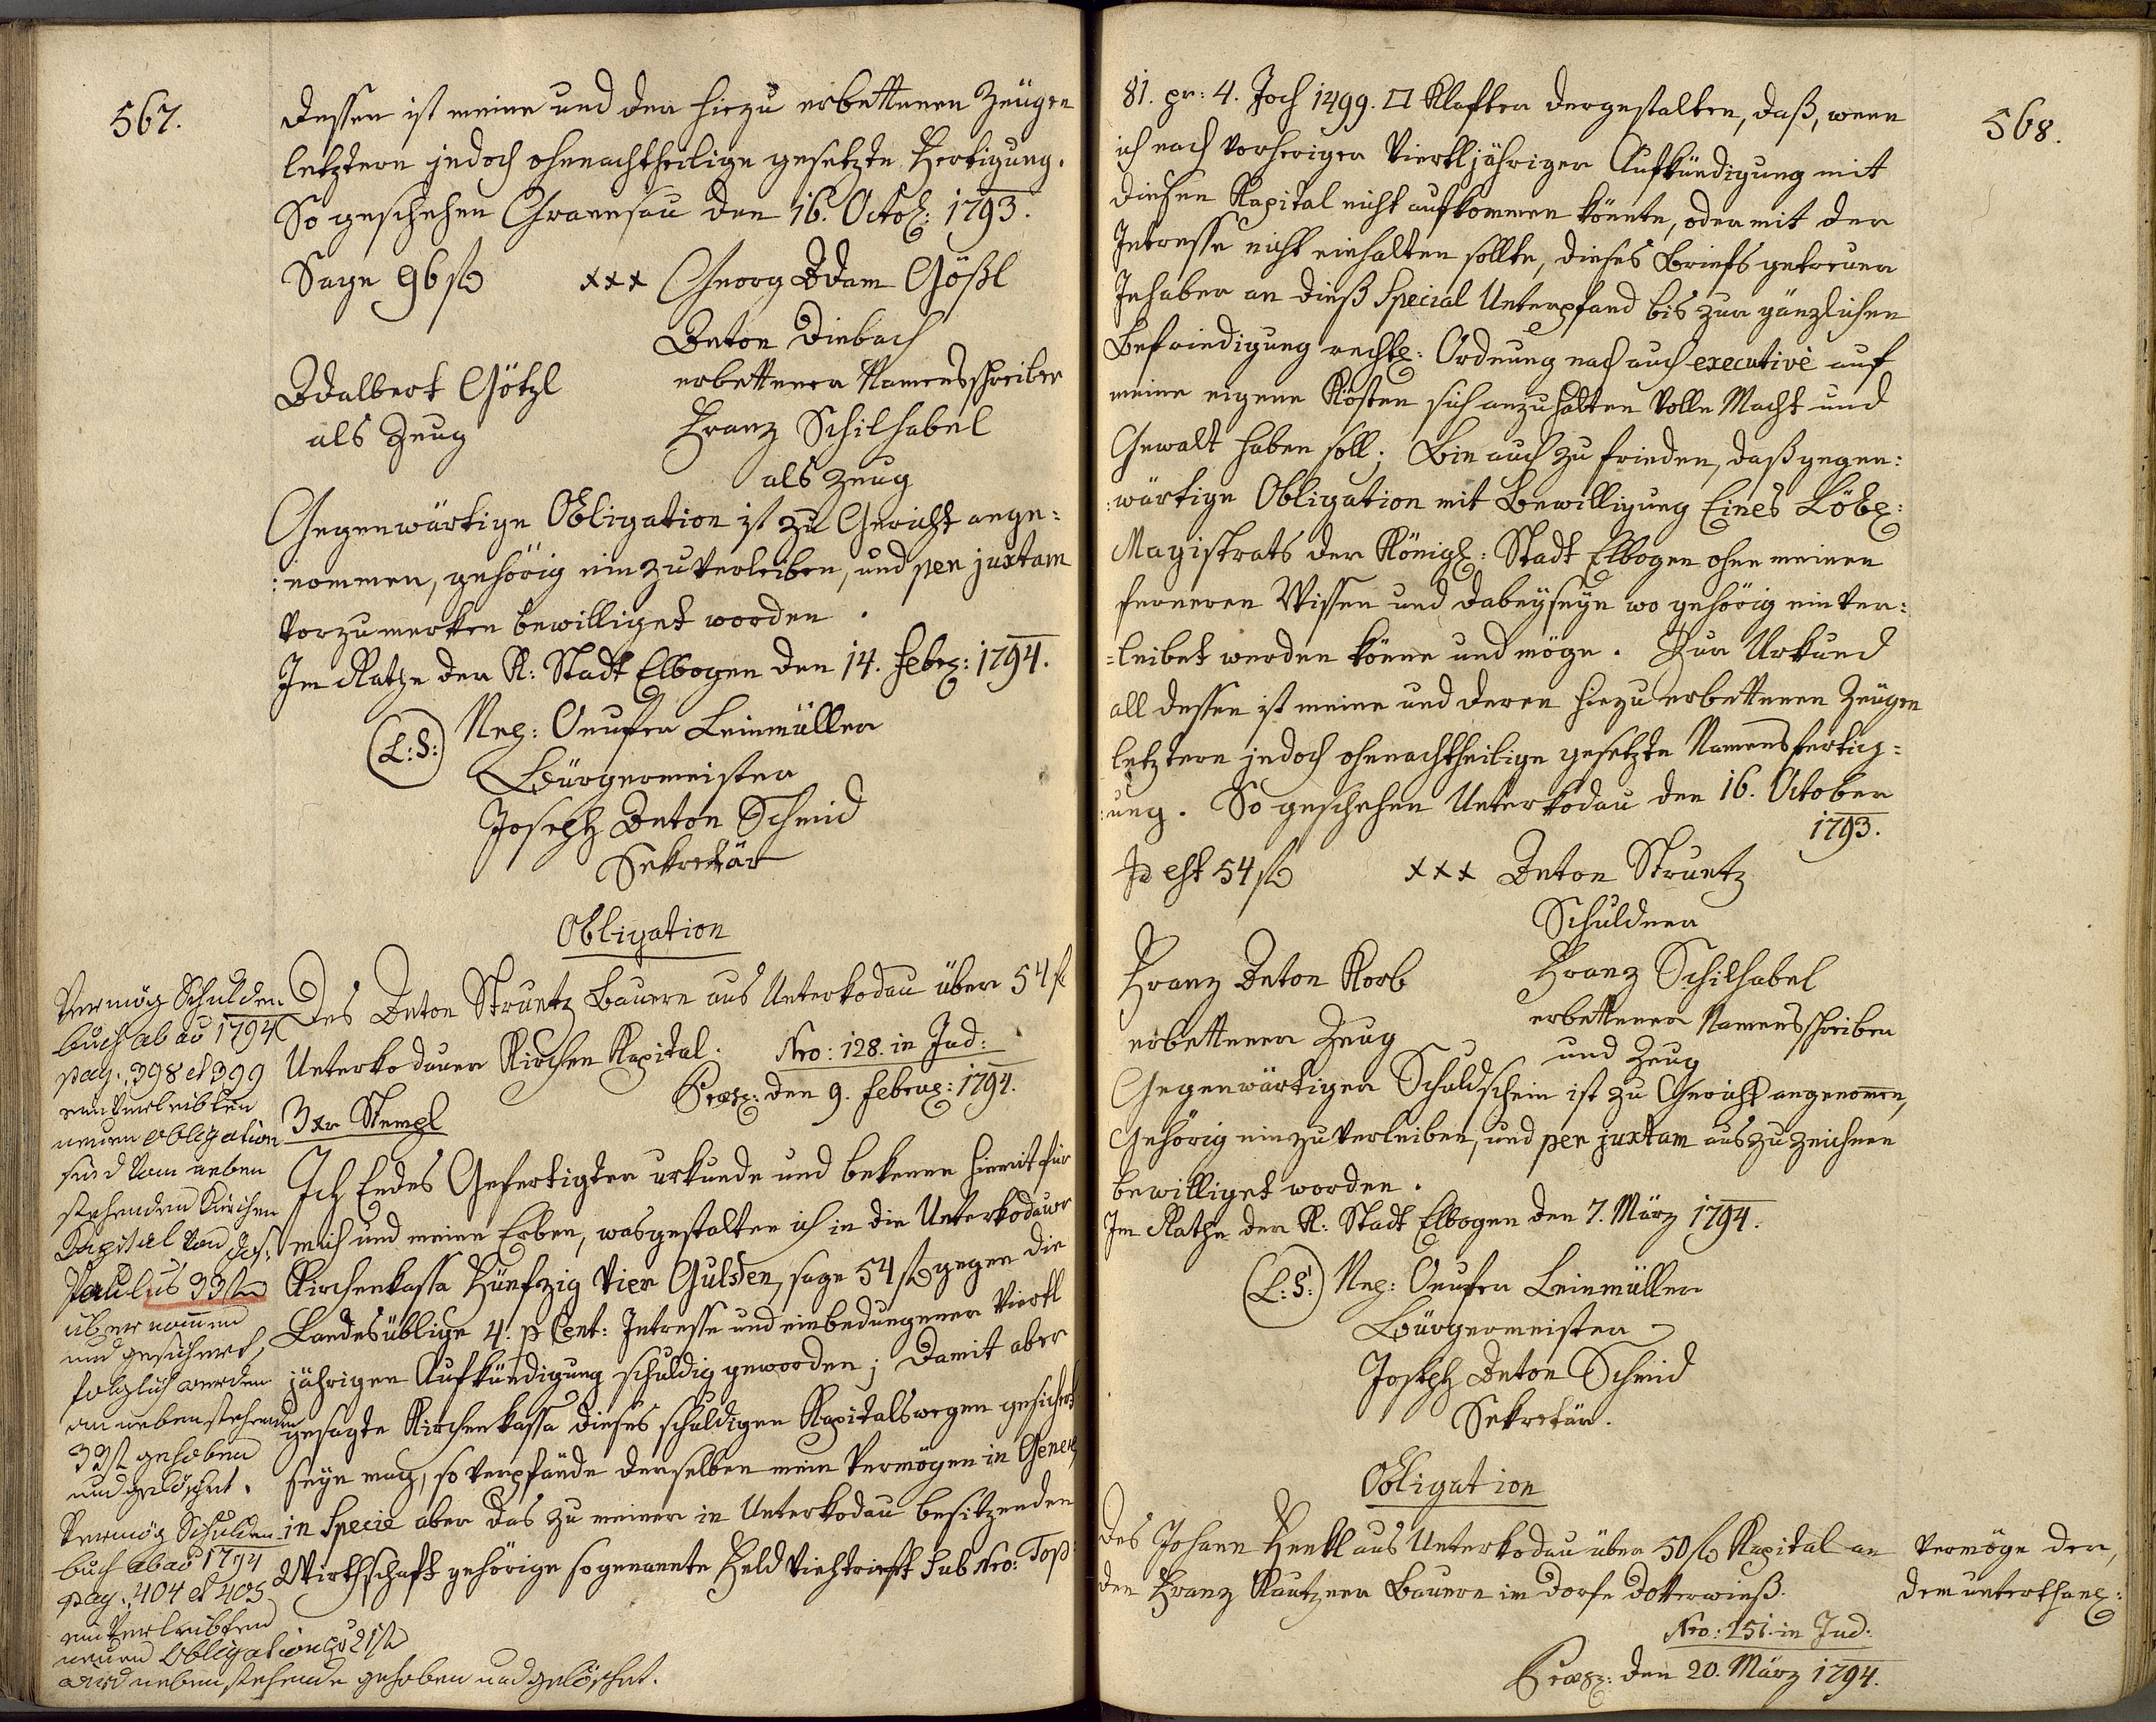 567.
dessen ist meine und der hiezu erbettenen Zeügen
letztern jedoch ohnnachtheilige gesetzte Fertigung.
So geschehen Granesau den 16. Octob: 1793.
Sage 96 f xxx Georg Adam Gößl
Anton Diebach
Adalbert Götzl erbettener Namensschreiber
als Zeug Franz Schilhabel
als Zeug
Gegenwärtige Obligation ist zu Gericht ange:
:nommen, gehörig einzuverleiben, und per juxtam
vorzumerken bewilliget worden.
Im Rathe der K: Stadt Elbogen den 14. Febr: 1794.
(L:S:) Neg: Onufer Leinmüller
Bürgermeister
Joseph Anton Schmid
Sekretär
Obligation
Des Anton Struntz Bauern aus Unterkodau über 54 f
Unterkodauer Kirchen Kapital. Nro: 128. in Jud:
Præs: den 9. Febru: 1794.
3 xr Stempl
Ich Endes Gefertigter urkunde und bekenne hiemit für
mich und meine Erben, wasgestalten ich in die Unterkodauer
Kirchenkassa Fünfzig Vier Gulden, sage 54 f gegen die
Landesüblige 4. p Cent: Intresse und einbedungener viertl
jährigen Aufkündigung schuldig geworden; Damit aber
gesagte Kirchenkassa dieses schuldigen Kapitalswegen gesichert
seyn mag, so verpfände derselben mein Vermögen in Genere,
in Specie aber das zu meiner in Unterkodau besitzenden
Wirthschaft gehörige sogenannte Feld Viehtrieft sub Nro: Top:
Vermög Schulden
buch ab ao 1794
pag. 398 et 399
einverleibten
neuen Obligation
sind vom neben
stehenden Kirchen
Capital von Jos:
Paulus 33 f
übernommen
und gesichert,
folglich werden
am nebenstehenden
33 f gehoben
und gelöscht.
Vermög Schulden
buch ab ao 1794
pag. 404 et 405
einverleibten
neuen Obligation pr 21 f
wird nebenstehende gehoben und gelöschet.
568.
81. pr: 4. Joch 1499. □ Klafter dergestalten, daß, wenn
ich nach vorheriger Viertljähriger Aufkündigung mit
diesen Kapital nicht aufkommen könnte, oder mit der
Intresse nicht einhalten sollte, dieses Briefs getreuer
Inhaber an dieß Special Unterpfand bis zur gänzlichen
Befriedigung rechtl: Ordnung nach auch executivè auf
meine eigene Kösten sich anzuhalten volle Macht und
Gewalt haben soll; Bin auch zu frieden, daß gegen:
:wärtige Obligation mit Bewilligung Eines Löbl:
Magistrats der Königl: Stadt Elbogen ohne meinen
ferneren Wissen und dabeyseyn wo gehörig einver:
=leibet werden könne und möge. Zur Urkund
all dessen ist meine und deren hiezu erbettenen Zeügen
letztern jedoch ohnnachtheilige gesetzte Namensfertig=
:ung. So geschehen Unterkodau den 16. October
1793.
Id est 54 f xxx Anton Struntz
Schuldner
Franz Anton Korb Franz Schilhabel
erbettener Zeug erbettener Namensschreiber
und Zeug
Gegenwärtiger Schuldschein ist zu Gericht angenommen,
Gehörig einzuverleiben, und per juxtam auszuzeichnen
bewilliget worden.
Im Rathe der K: Stadt Elbogen den 7. März 1794.
(L:S:) Neg: Onufer Leinmüller
Bürgermeister
Joseph Anton Schmid
Sekretär.
Obligation
des Johann Henkl aus Unterkodau über 50 f Kapital an
den Franz Kautzner Bauern im Dorfe Dotterwieß.
Nro: 251. in Jud:
Præs: den 20. März 1794.
Vermöge der,
dem unterthan: